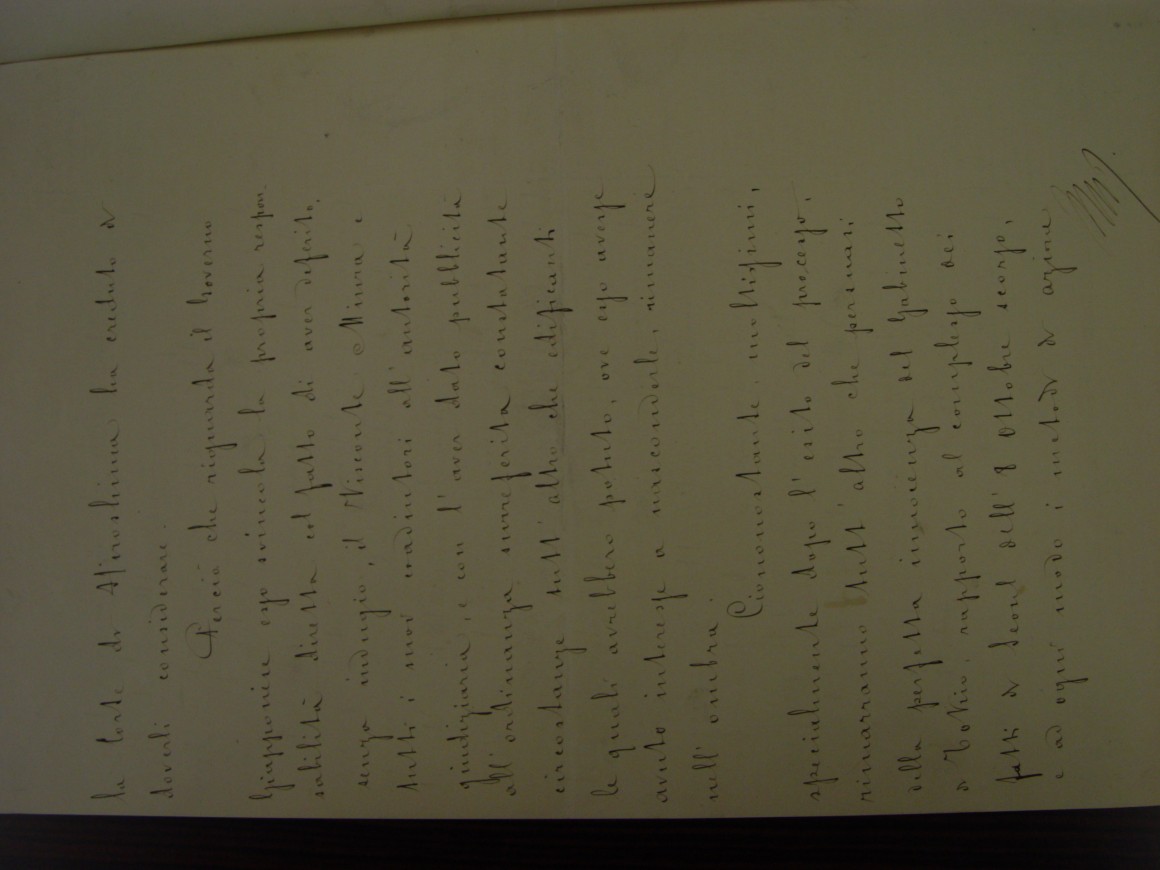 la Corte di Hiroshima ha creduto di
doverli considerare.
Perciò che riguarda il Governo
Giapponese esso svincola la propria respon-
sabilità diretta col fatto di aver deferito,
senza indugio, il Visconte Miura e
tutti i suoi coadiutori all'autorità
giudiziaria, e con l'aver dato pubblicità
all'ordinanza surriferita constatante
circostanze tutt'altro che edificanti
le quali avrebbero potuto, ove esso avesse
avuto interesse a nasconderle, rimanere
nell'ombra.
Cionostante, moltissimi,
specialmente dopo l'esito del processo,
rimarranno tutt'altro che persuasi
della perfetta inscienza del Gabinetto
di Tokio, rapporto al complesso dei
fatti di Seoul dell'8 Ottobre scorso,
e ad ogni modo i metodi di azione